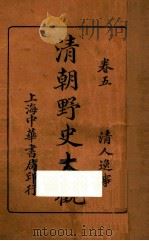 卷五 清人逸事
清朝野史大觀
上海中華書局印行